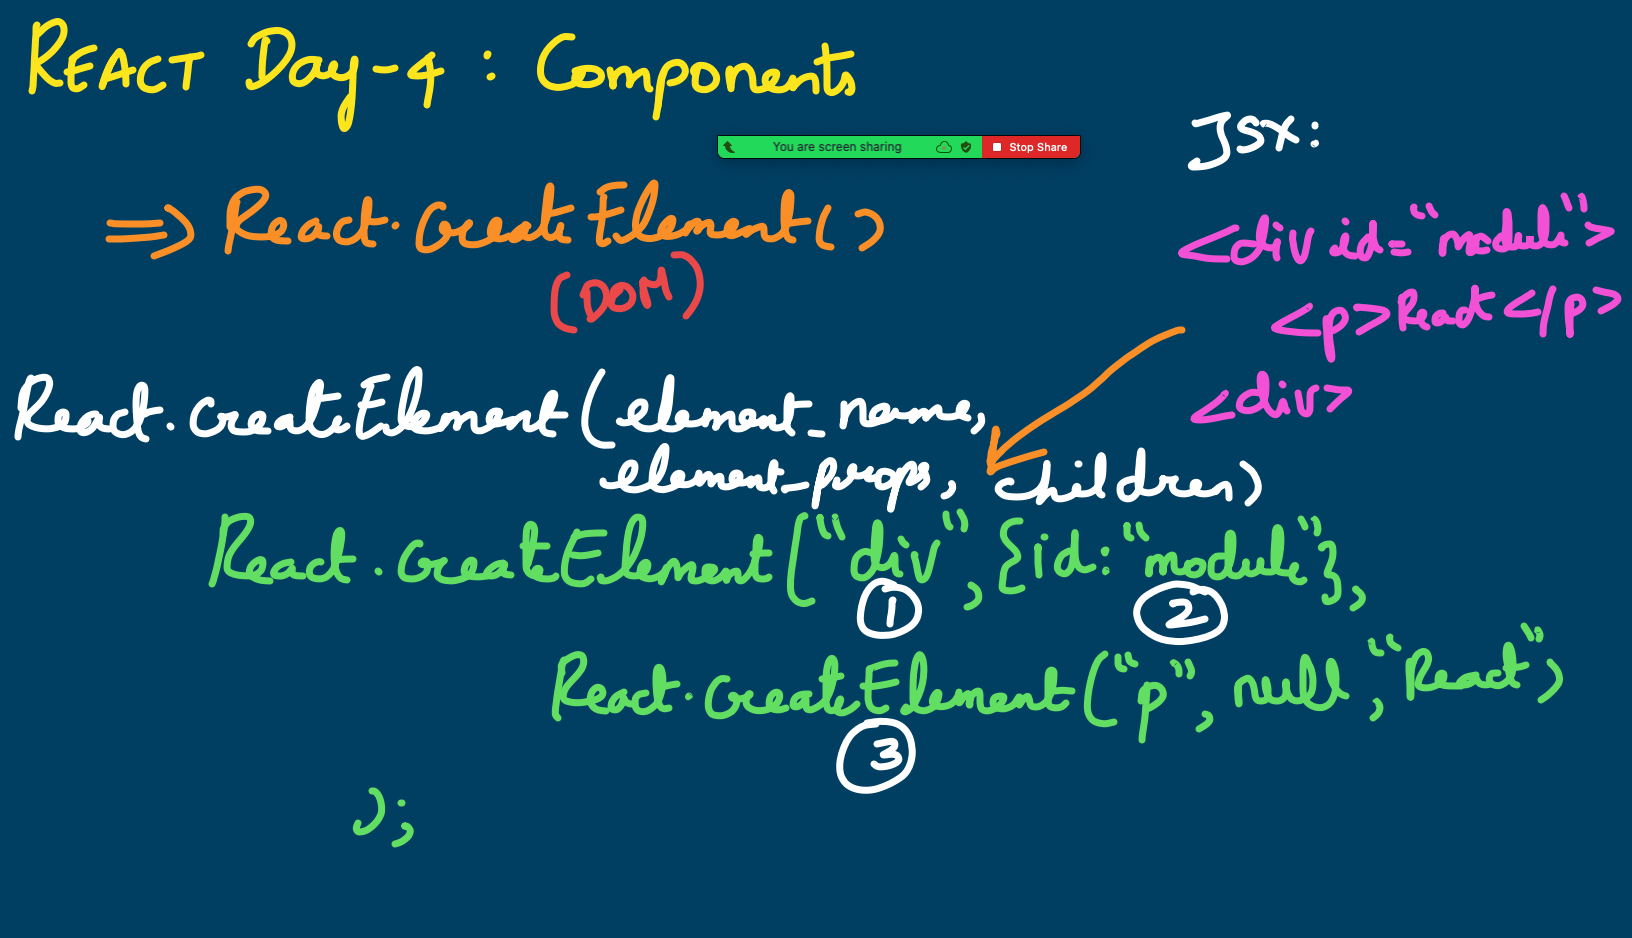 REACT Day-4 : Components
You are screen sharing
Stop Share
JSX:
=> React.createElement()
(DOM)
<div id="module">
<p>React</p>
<div>
React.createElement(element_name,
element_props, children)
React.createElement("div", {id: "module"},
1
2
React.createElement("p", null, "React")
3
);